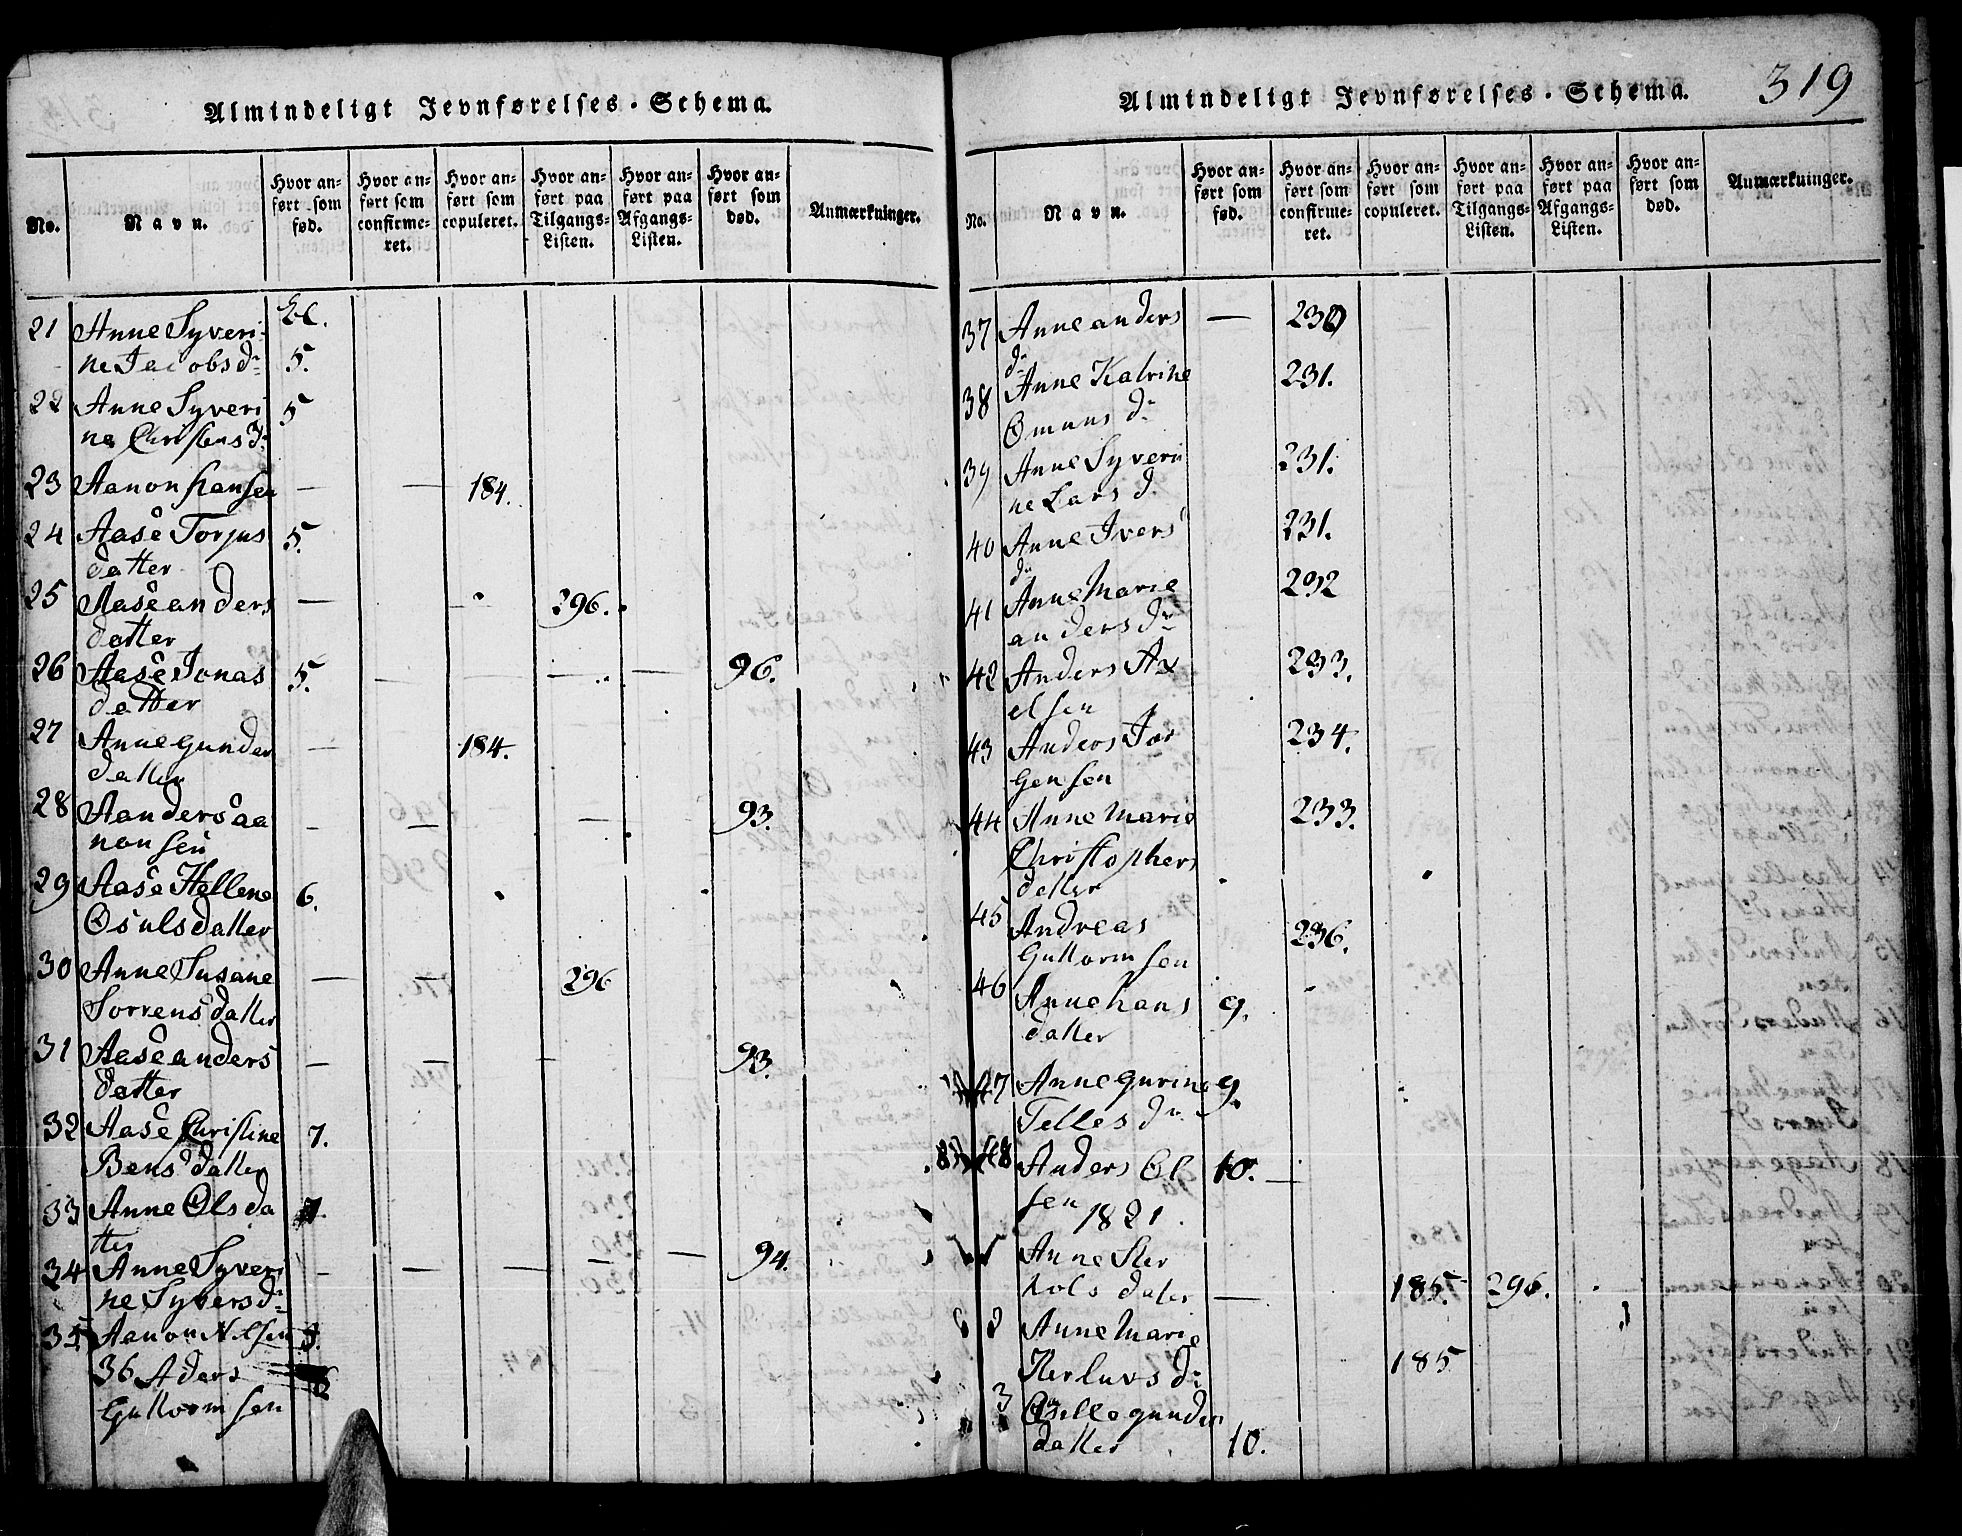 Almindeligt Jevnførelses-Schema.
No.
Navn.
Hvor an-
ført som
fød.
Hvor an-
ført som
confirme-
ret.
Hvor an-
ført som
copuleret.
Hvor an-
ført paa
Tilgangs-
Listen.
Hvor an-
ført paa
Afgangs-
Listen.
Hvor an-
ført som
død.
Anmærkninger.
21 Anne Syveri-
ne Jacobsdr 5.
22 Anne Syveri 5
ne Christensdr
23 Aanon Hansen — — 184.
24 Aase Torjus 5.
datter
25 Aase anders — — 296.
datter
26 Aase Jonas 5. — — — 96.
datter
27 Anne gunder — 184.
datter
28 Aanders aa — — — 93.
nonsen
29 Aase Hellene 6.
Osulsdatter
30 Anne Susane — 296
Sorrensdatter
31 Aase anders — — — 93.
datter
32 Aase Christine 7.
Bensdatter
33 Anne Olsda 7.
tter
34 Anne Syveri — — — — — 94.
ne Syversdr
35 Aanon Nilsen 8.
36 Aders
Guttormsen
Almindeligt Jevnførelses-Schema.
319
No.
Navn.
Hvor an-
ført som
fød.
Hvor an-
ført som
confirme-
ret.
Hvor an-
ført som
copuleret.
Hvor an-
ført paa
Tilgangs-
Listen.
Hvor an-
ført paa
Afgangs-
Listen.
Hvor an-
ført som
død.
Anmærkninger.
37 Anne anders — 230
dr
38 Anne Katrine 231.
Omunsdr
39 Anne Syveri 231.
ne Larsd.
40 Anne Ivers 231.
dr
41 Anne Marie 232
andersdr
42 Anders Ax 233.
elsen
43 Anders Jør 234.
gensen
44 Anne Marie 233.
Christophers
datter
45 Andreas 236.
Guttormsen
46 Anne hans 9.
datter
47 Anne gurine 9.
Tellesdr
48 Anders Ol 10. —
sen
1821.
Anne Ster
kolsdater — 185. 296.
2 Anne Marie
Herluvsdr 185
3 Osille gunder
datter 10.